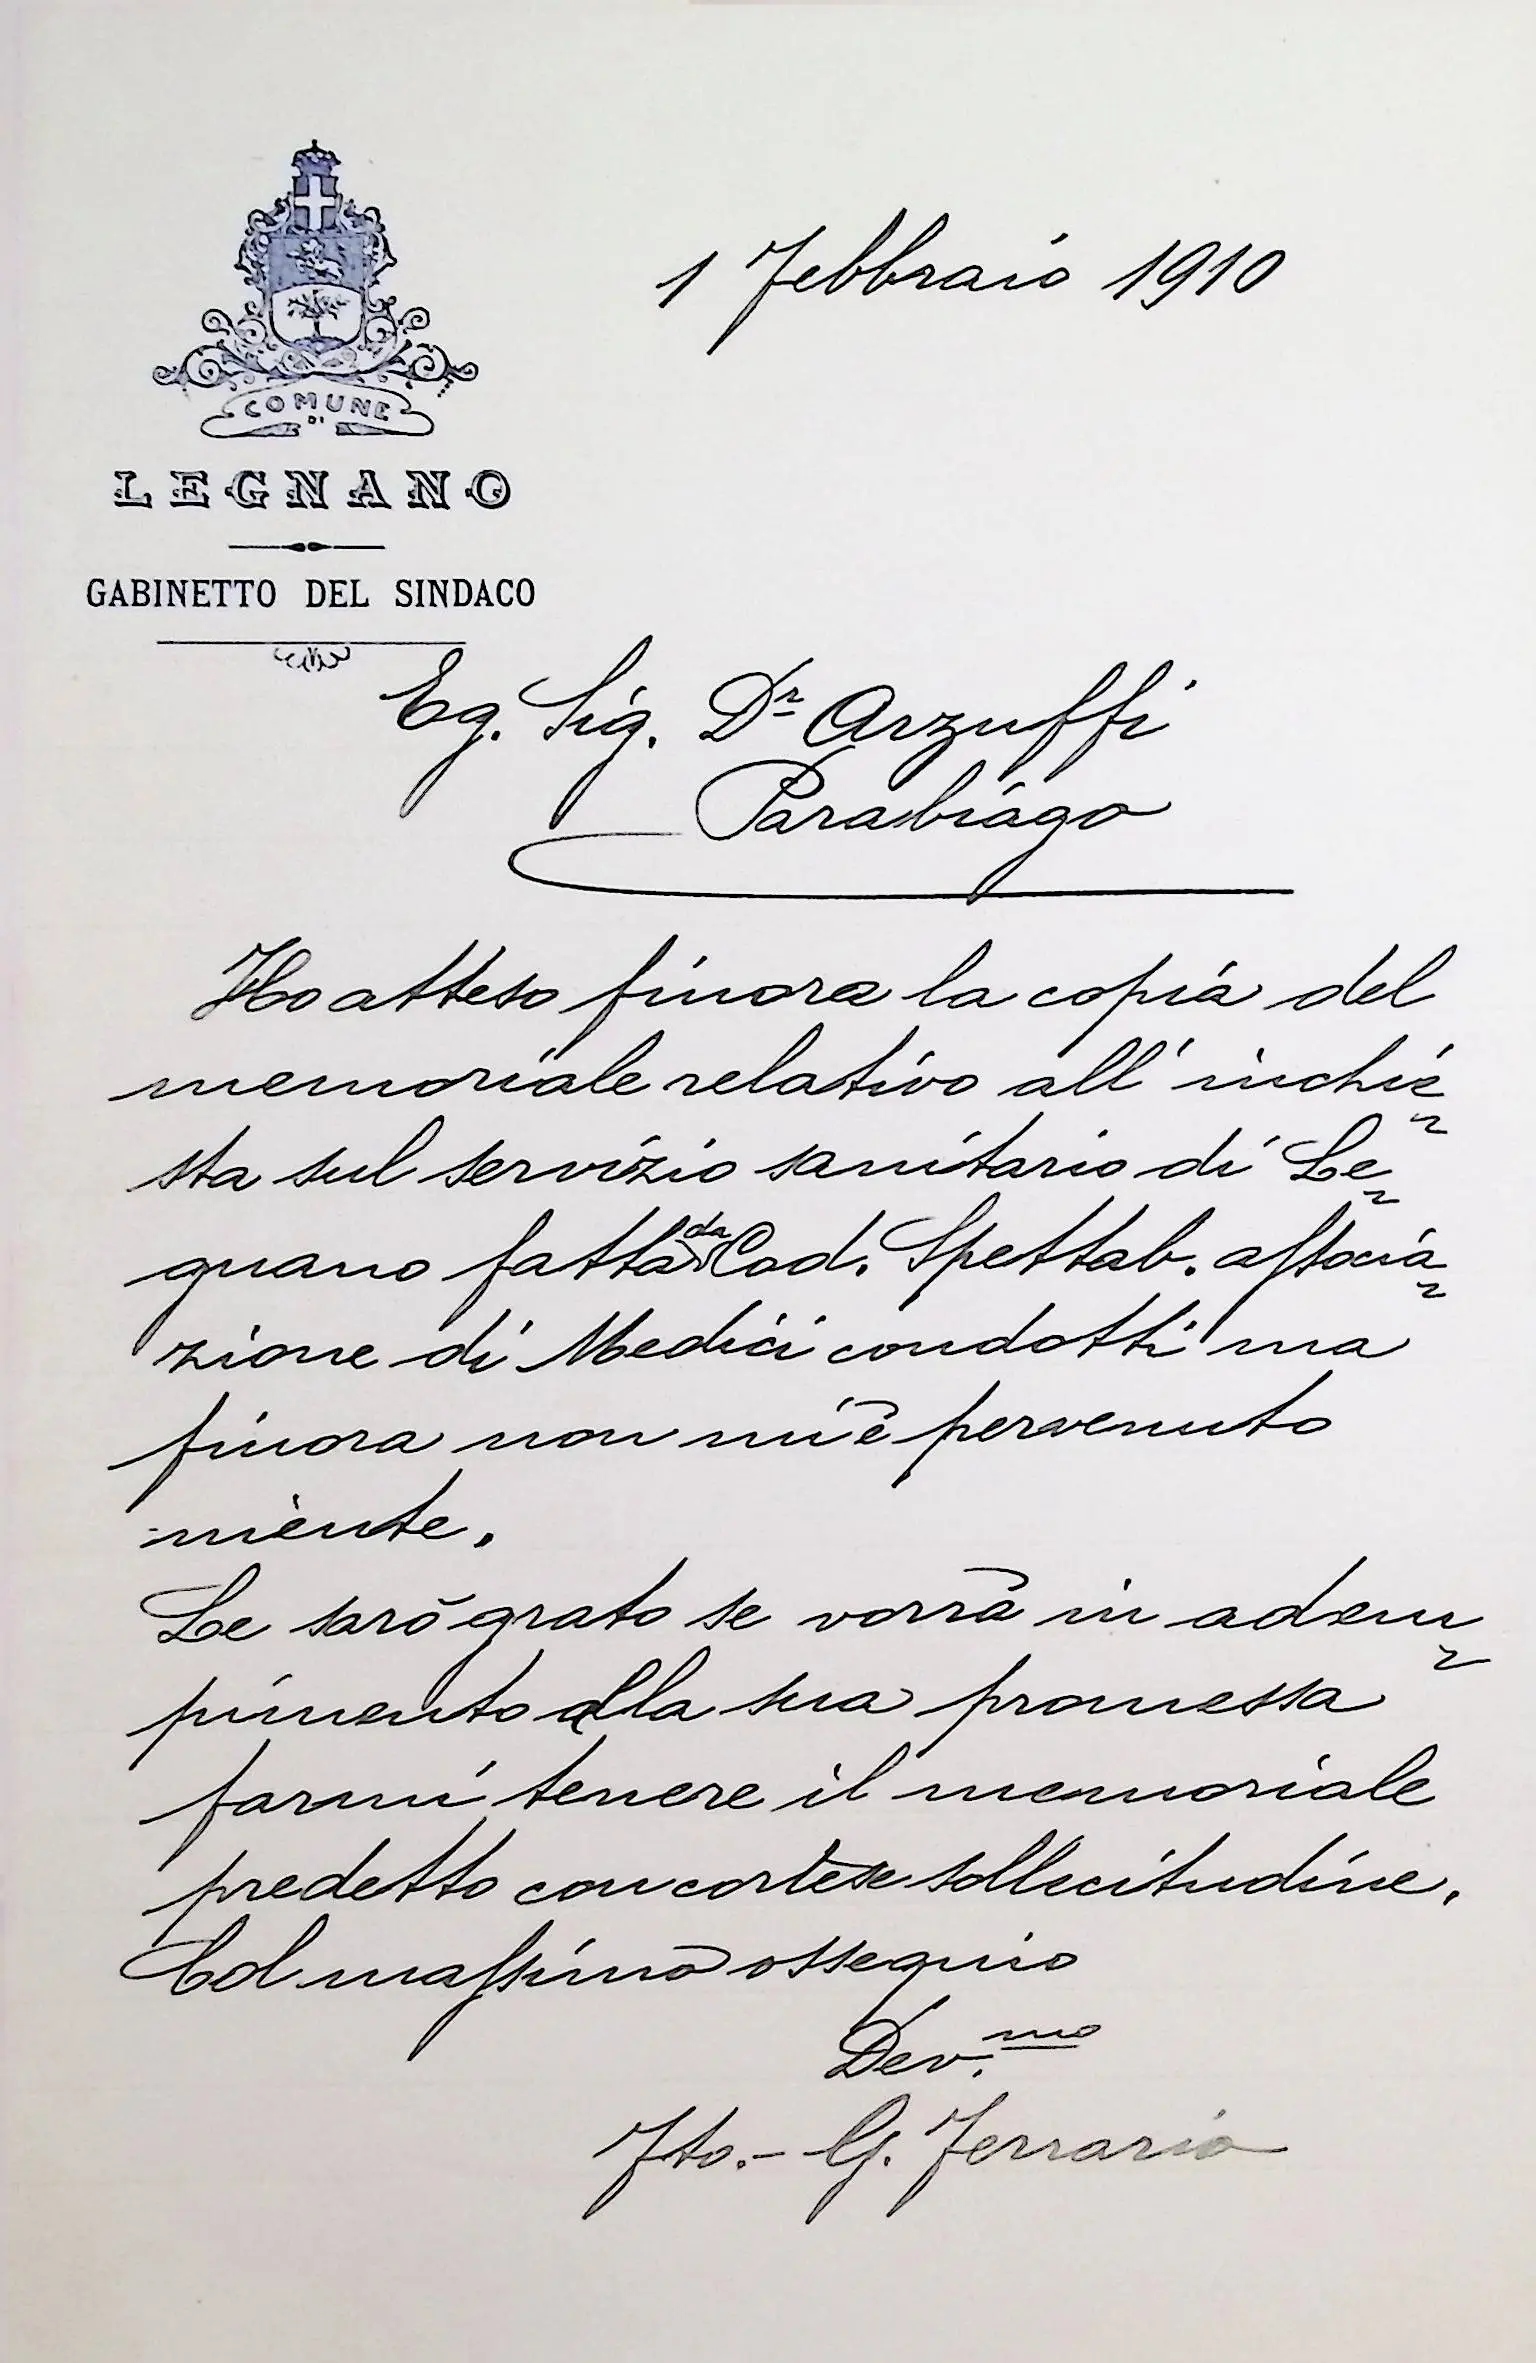 1 Febbraio 1910
COMUNE
DI
LEGNANO
GABINETTO DEL SINDACO
Eg. Sig. Dr Arzuffi
Parabiago
Ho atteso finora la copia del
memoriale relativo all'inchie
sta sul servizio sanitario di Le
gnano fatta da Cod. Spettab. associa
zione di Medici condotti ma
finora non mi è pervenuto
niente.
Le sarò grato se vorrà in adem
pimento alla sua promessa
farmi tenere il memoriale
predetto con cortese sollecitudine.
Col massimo ossequio
Dev.mo
Fto.- G. Ferrario